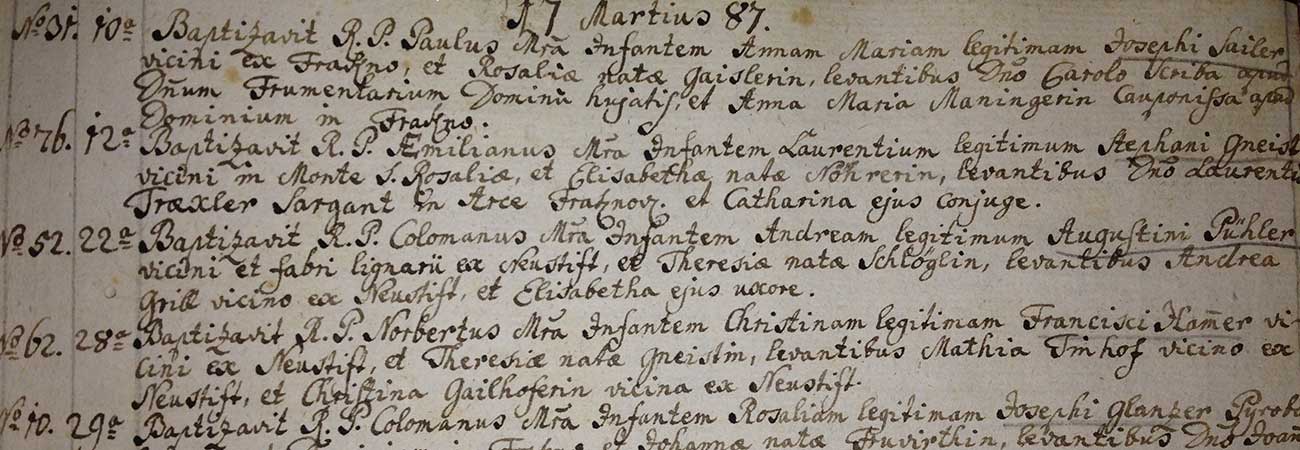 17 Martius 87
No 31. 10a Baptizavit R. P. Paulus Mrã Infantem Annam Mariam legitimam Josephi Sailer
vicini ex Frakno, et Rosaliæ natæ Gaislerin, levantibus Dno Carolo Scriba apud
Dnum Frumentarium Dominii hujatis, et Anna Maria Maningerin Cauponissa apud
Dominium in Frakno.
No 76. 12a Baptizavit R. P. Æmilianus Mrã Infantem Laurentium legitimum Stephani Gneist
vicini in Monte S. Rosaliæ, et Elisabethæ natæ Nöhrerin, levantibus Dno Laurentio
Træxler Sargant in Arce et Catharina ejus conjuge.
No 52. 22a Baptizavit R. P. Colomanus Mrã Infantem Andream legitimum Augustini Pühler
vicini et fabri lignarii ex Neustift, et Theresiæ natæ Schlöglin, levantibus Andrea
Grill vicino ex Neustift, et Elisabetha ejus uxore.
No 62. 28a Baptizavit R. P. Norbertus Mrã Infantem Christinam legitimam Francisci Ham̃er vi-
cini ex Neustift, et Theresiæ natæ Gneistin, levantibus Mathia Imhof vicino ex
Neustift, et Christina Gailhoferin vicina ex Neustift.
No 10. 29a Baptizavit R. P. Colomanus Mrã Infantem Rosaliam legitimam Josephi Glanzer
et Johannæ natæ Fruvirthin, levantibus Dno